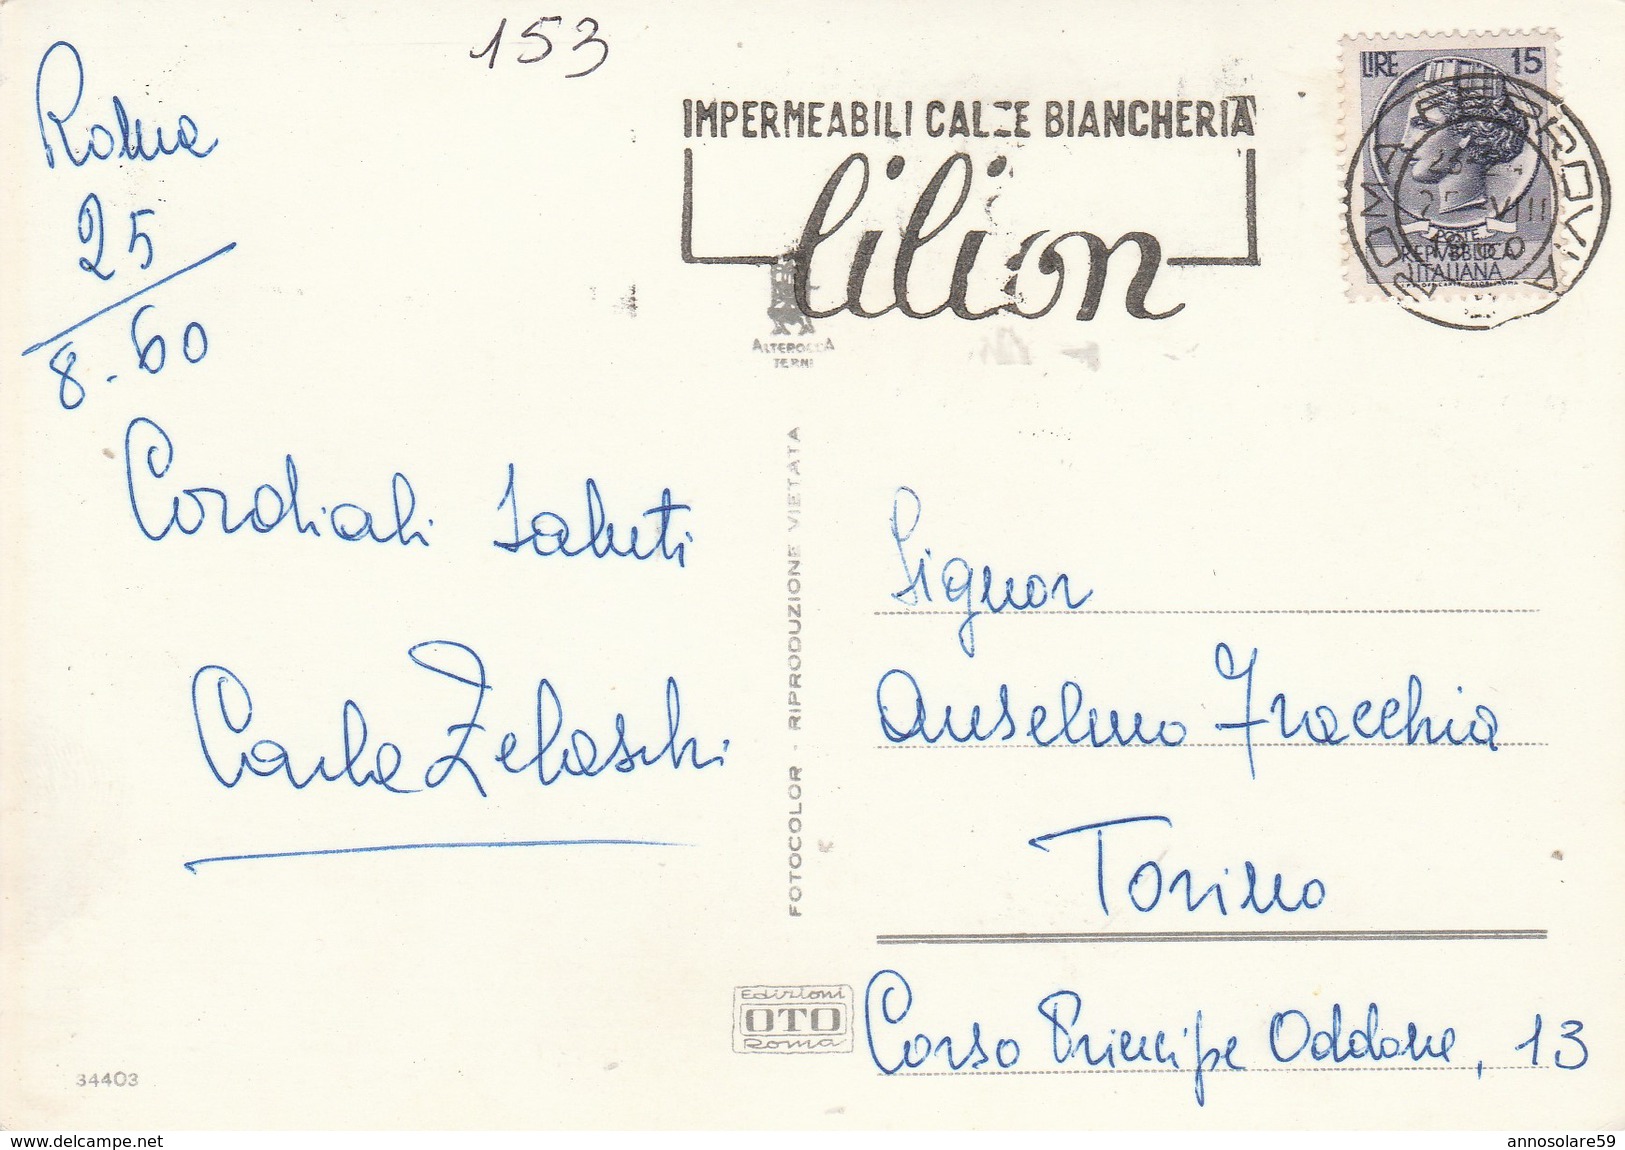 153
Roma
25
8-60
Cordiali saluti
Carla Zelaschi
34403
IMPERMEABILI CALZE BIANCHERIA
lilion
ALTEROCCA
TERNI
FOTOCOLOR - RIPRODUZIONE VIETATA
Edizioni
OTO
Roma
LIRE 15
POSTE
REPVBBLICA
ITALIANA
ROMA FERROVIA
Signor
Anselmo Fracchia
Torino
Corso Principe Oddone, 13
www.delcampe.net
annosolare59